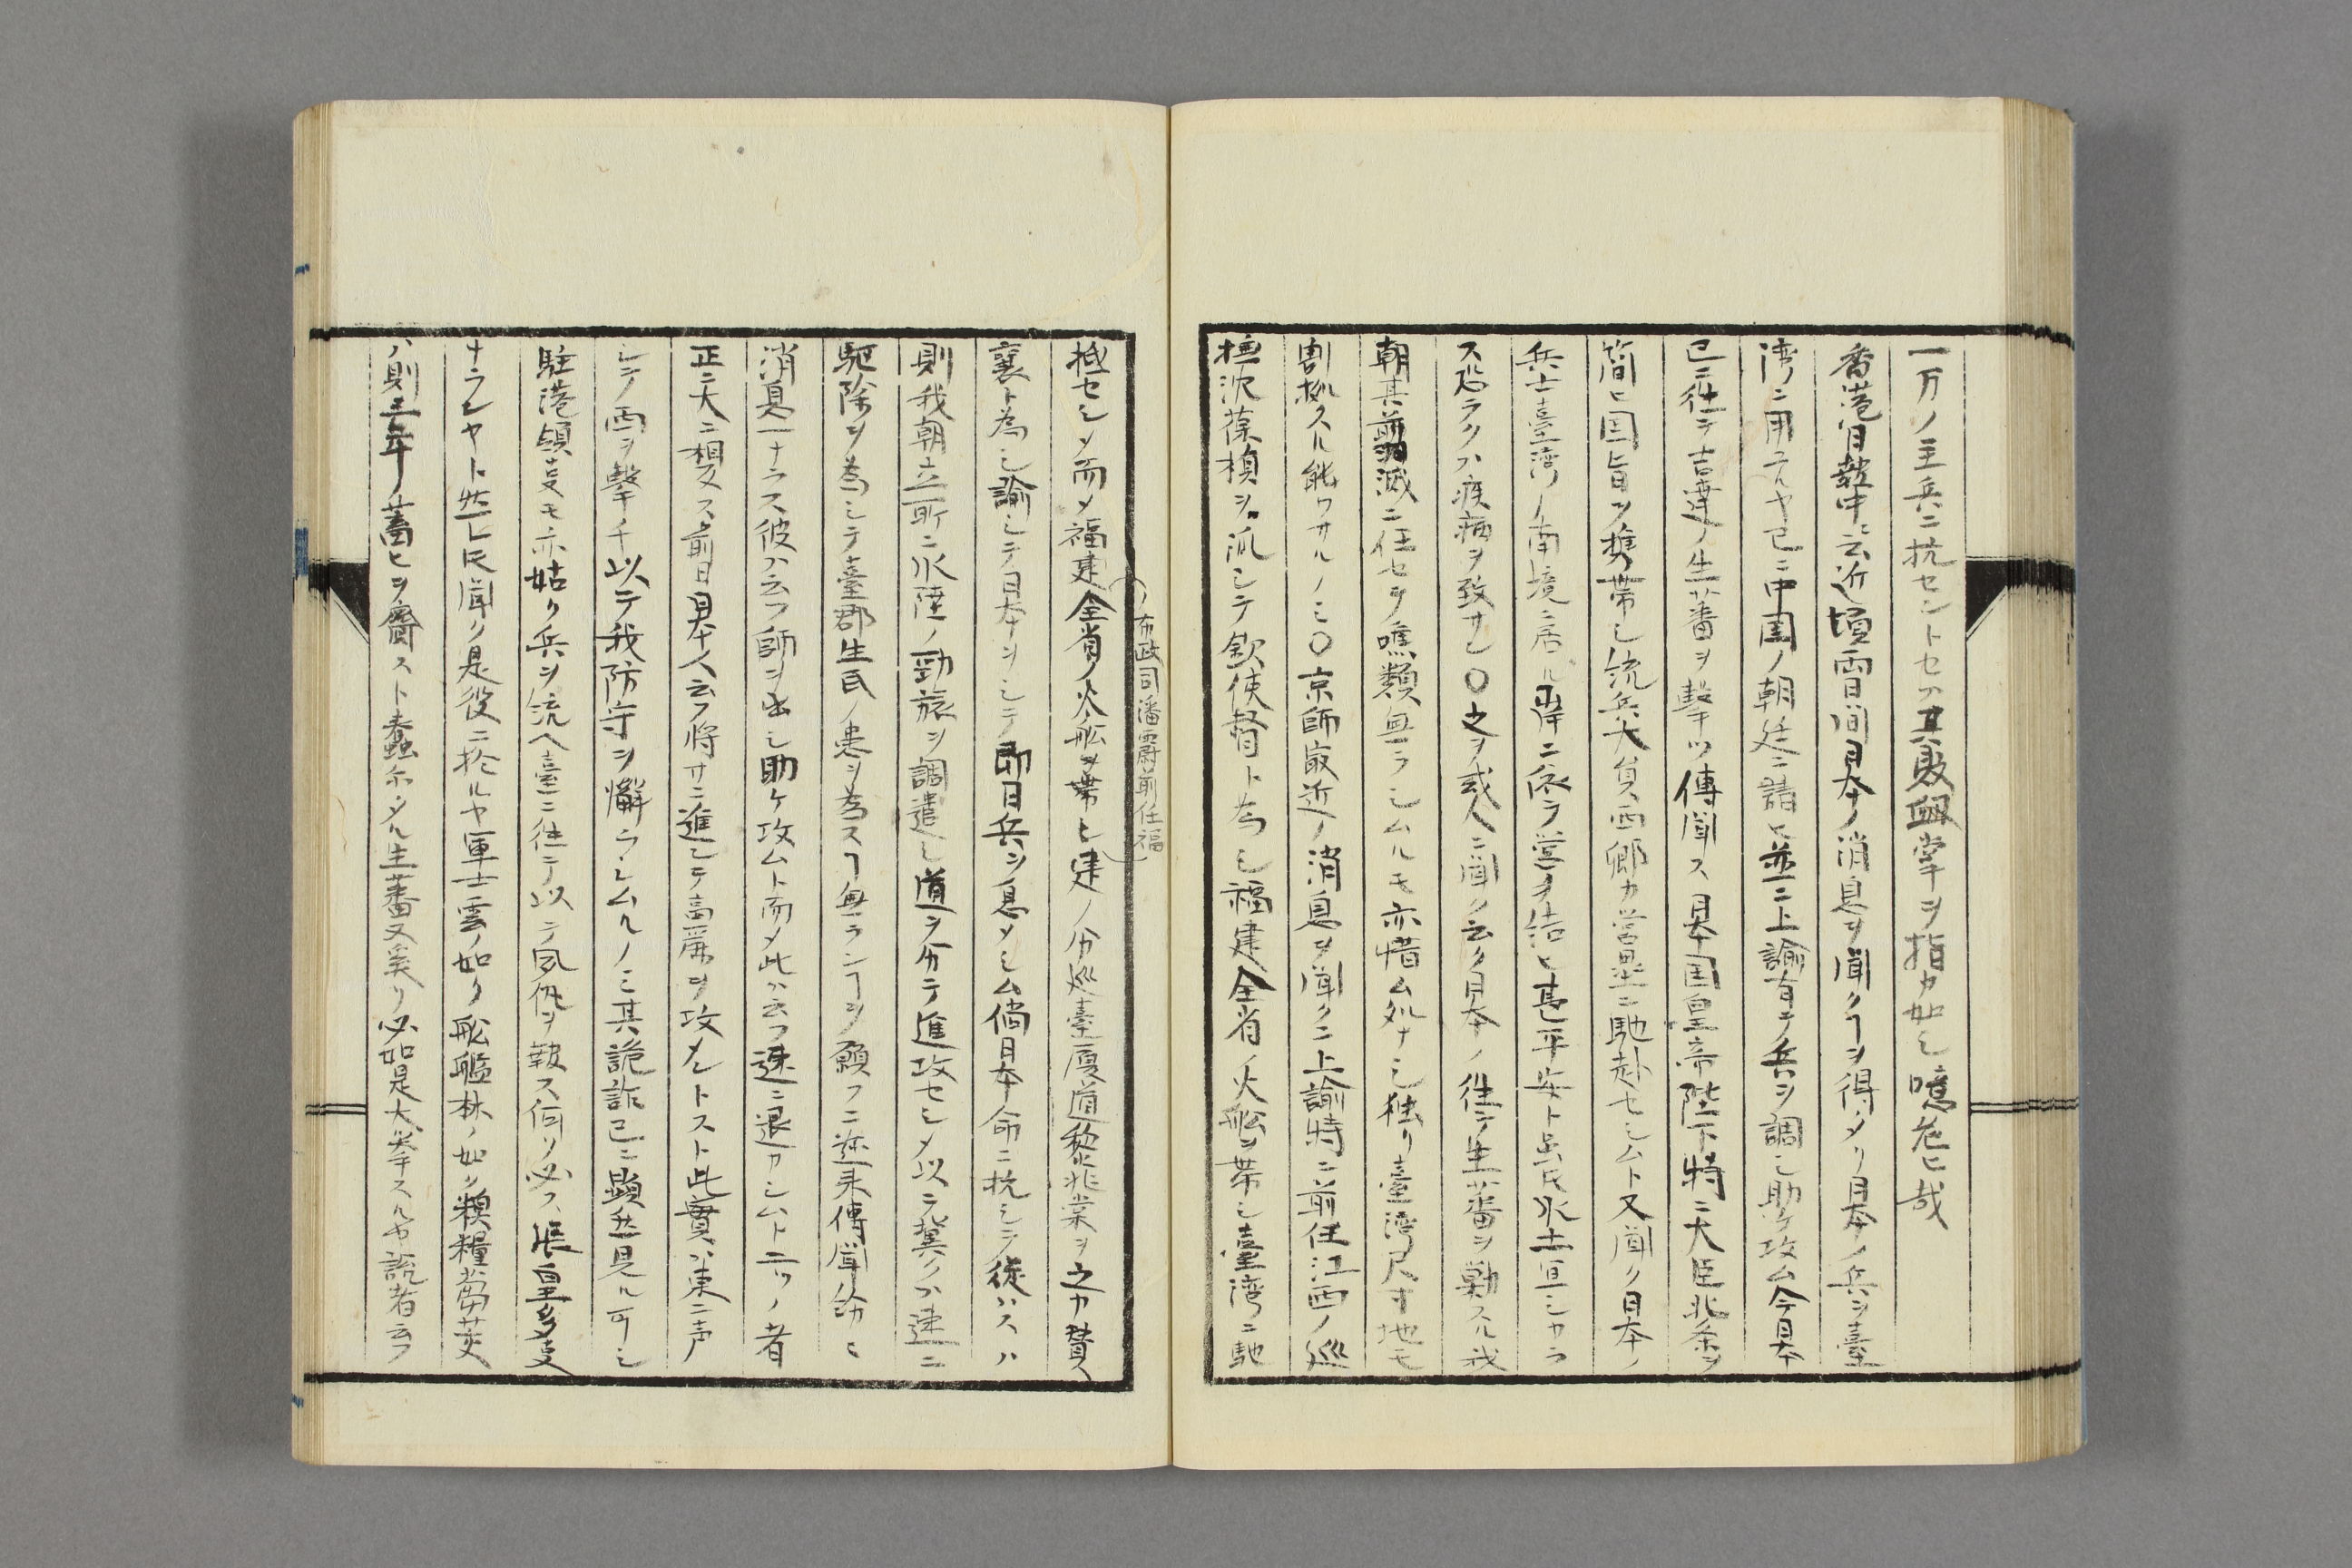 一万ノ主兵ニ抗セントセハ其敗衂掌ヲ指カ如シ噫危ヒ哉
香港日報中ニ云近頃両日間日本ノ消息ヲ聞クヿヲ得タリ日本ノ兵ヲ臺
湾ニ用ユルヤ已ニ中国ノ朝廷ニ請ヒ並ニ上諭有テ兵ヲ調シ助ケ攻ム今日本
已ニ往テ吉達ノ生蕃ヲ撃ツ傳聞ス日本国皇帝陛下特ニ大臣北条ヲ
簡ヒ国旨ヲ携帯シ流兵大員西郷カ営塁ニ馳赴セシムト又聞ク日本ノ
兵士臺湾ノ南境ニ居ル岸ニ依ラ営ヲ結ヒ甚平安ト虽𪜈水土宜シカラ
ス恐ラクハ疾病ヲ致サン〇之ヲ或人ニ聞ク云ク日本ノ往テ生蕃ヲ勦スル我
朝其翦滅ニ任セテ噍類無ラシムルモ亦惜ム処ナシ独リ臺湾尺寸地モ
割拠スル能ワサルノミ〇京師最近ノ消息ヲ聞クニ上諭特ニ前任江西ノ巡
撫沈葆楨ヲ派シテ欽使督ト為シ福建全省ノ火船ヲ帯シ臺湾ニ馳
布政司潘霨前任福
極セシメ而メ福建全省ノ火船ヲ帯ヒ建ノ分巡臺厦道黎兆棠ヲ之カ賛
襄ト為シ諭シテ日本ヲシテ即日兵ヲ息メシム倘日本命ニ抗シテ従ハスハ
則我朝立所ニ水陸ノ勁旅ヲ調遣シ道ヲ分テ進攻セシメ以テ冀クハ速ニ
駆除ヲ為シテ臺郡生民ノ患ヲ為スヿ無ランヿヲ願フニ近来傳聞紛ヒ
消息一ナラス彼ハ云フ師ヲ出シ助ケ攻ムト而メ此ハ云フ速ニ退カシムト二ツノ者
正ニ大ニ相反ス前日日本人云フ将サニ進シテ高麗ヲ攻メントスト此實ハ東ニ声
シテ西ヲ撃チ以テ我防守ヲ懈ラシムルノミ其詭詐已ニ顕然見ル可シ
駐港領支モ亦姑ク兵ヲ流ヘ臺ニ往テ以テ夙仇ヲ報ス何ソ必ス張皇多支
ナランヤト然レ𪜈聞ク是役ニ於ルヤ軍士雲ノ如ク船艦林ノ如ク糗糧芻茭
ハ則三年ノ蓄ヒヲ齎スト蠢尓タル生蕃又奚ソ必如是大挙スルヤ説者云フ